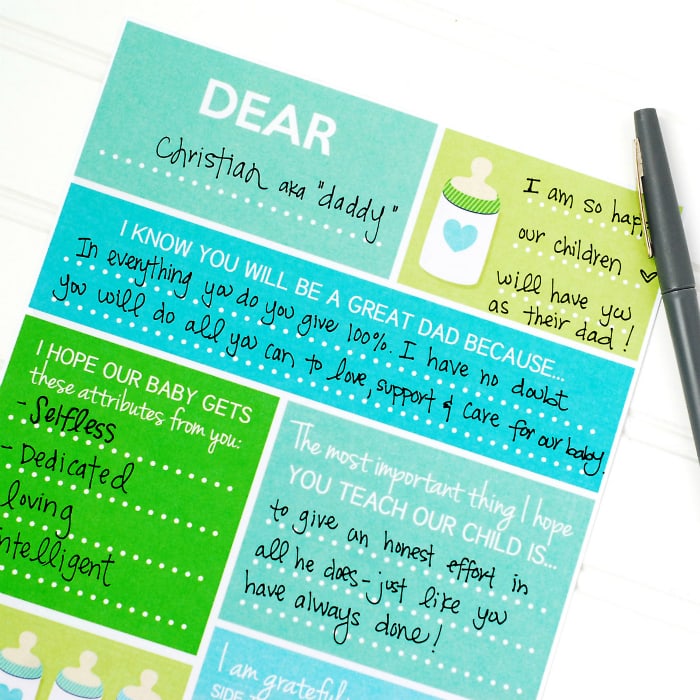 DEAR
Christian aka "daddy"
I am so
our children
will have you
as their dad!
I KNOW YOU WILL BE A GREAT DAD BECAUSE...
In everything you do you give 100%. I have no doubt
you will do all you can to love, support & care for our baby.
I HOPE OUR BABY GETS
these attributes from you:
- Selfless
- Dedicated
loving
intelligent
The most important thing I hope
YOU TEACH OUR CHILD IS...
to give an honest effort in
all he does - just like you
have always done!
I am grateful
SIDE